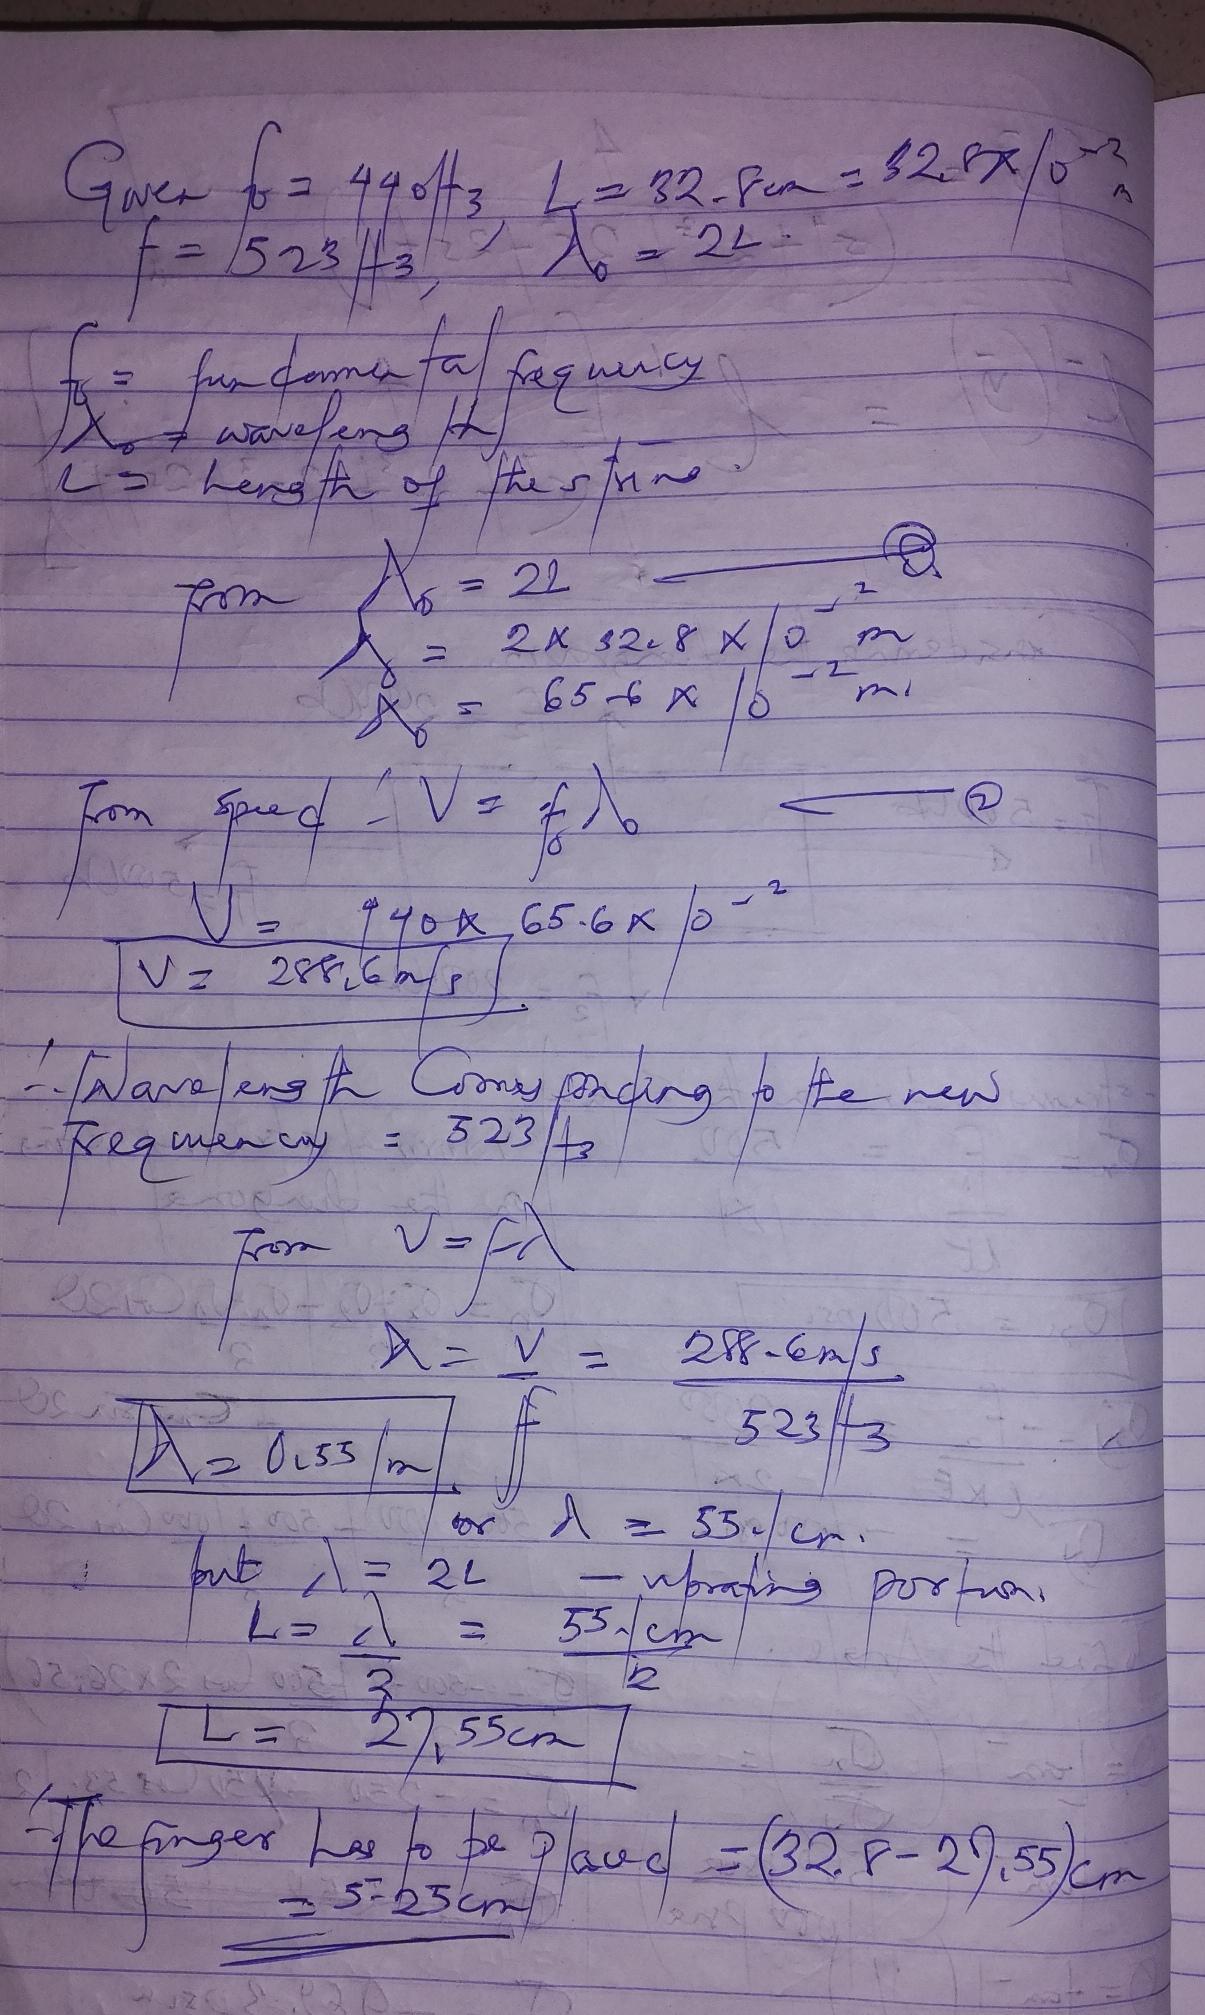 Given f₀ = 440Hz, L = 32.8cm = 32.8x10⁻² m
f = 523Hz, λ₀ = 2L.
f₀ = fundamental frequency
λ₀ = wavelength
L = Length of the string.
From λ₀ = 2L ①
λ₀ = 2 x 32.8 x 10⁻² m
λ₀ = 65.6 x 10⁻² m.
From speed : V = f₀λ₀ ②
V = 440 x 65.6 x 10⁻²
V = 288.6m/s
∴ Wavelength Corresponding to the new
Frequency = 523Hz
From V = fλ
λ = V/f = 288.6m/s / 523Hz
λ = 0.551m
or λ = 55.1cm.
but λ = 2L – vibrating portion.
L = λ/2 = 55.1cm/2
L = 27.55cm
∴ The finger has to be placed = (32.8 - 27.55)cm
= 5.25cm